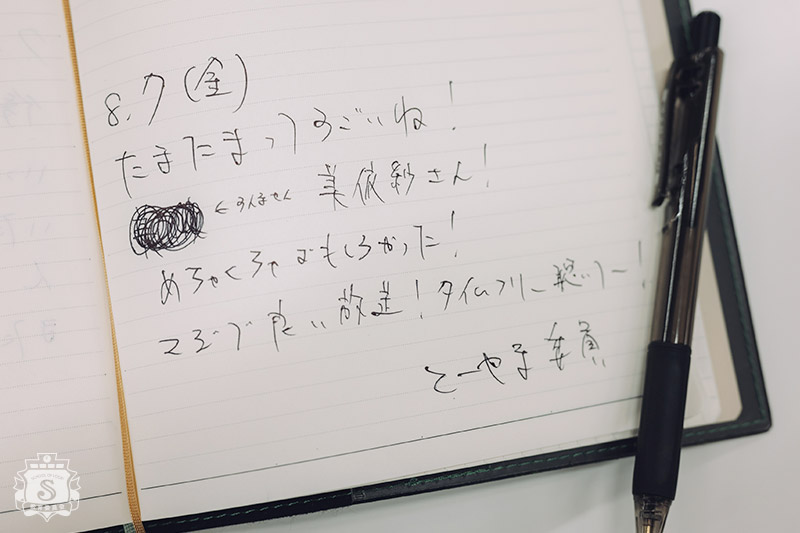 8.7(金)
たまたまってすごいね!
←すんません 美依紗さん!
めちゃくちゃおもしろかった!
マジで良い放送!タイムフリー聴いてー!
とーやま委員
S